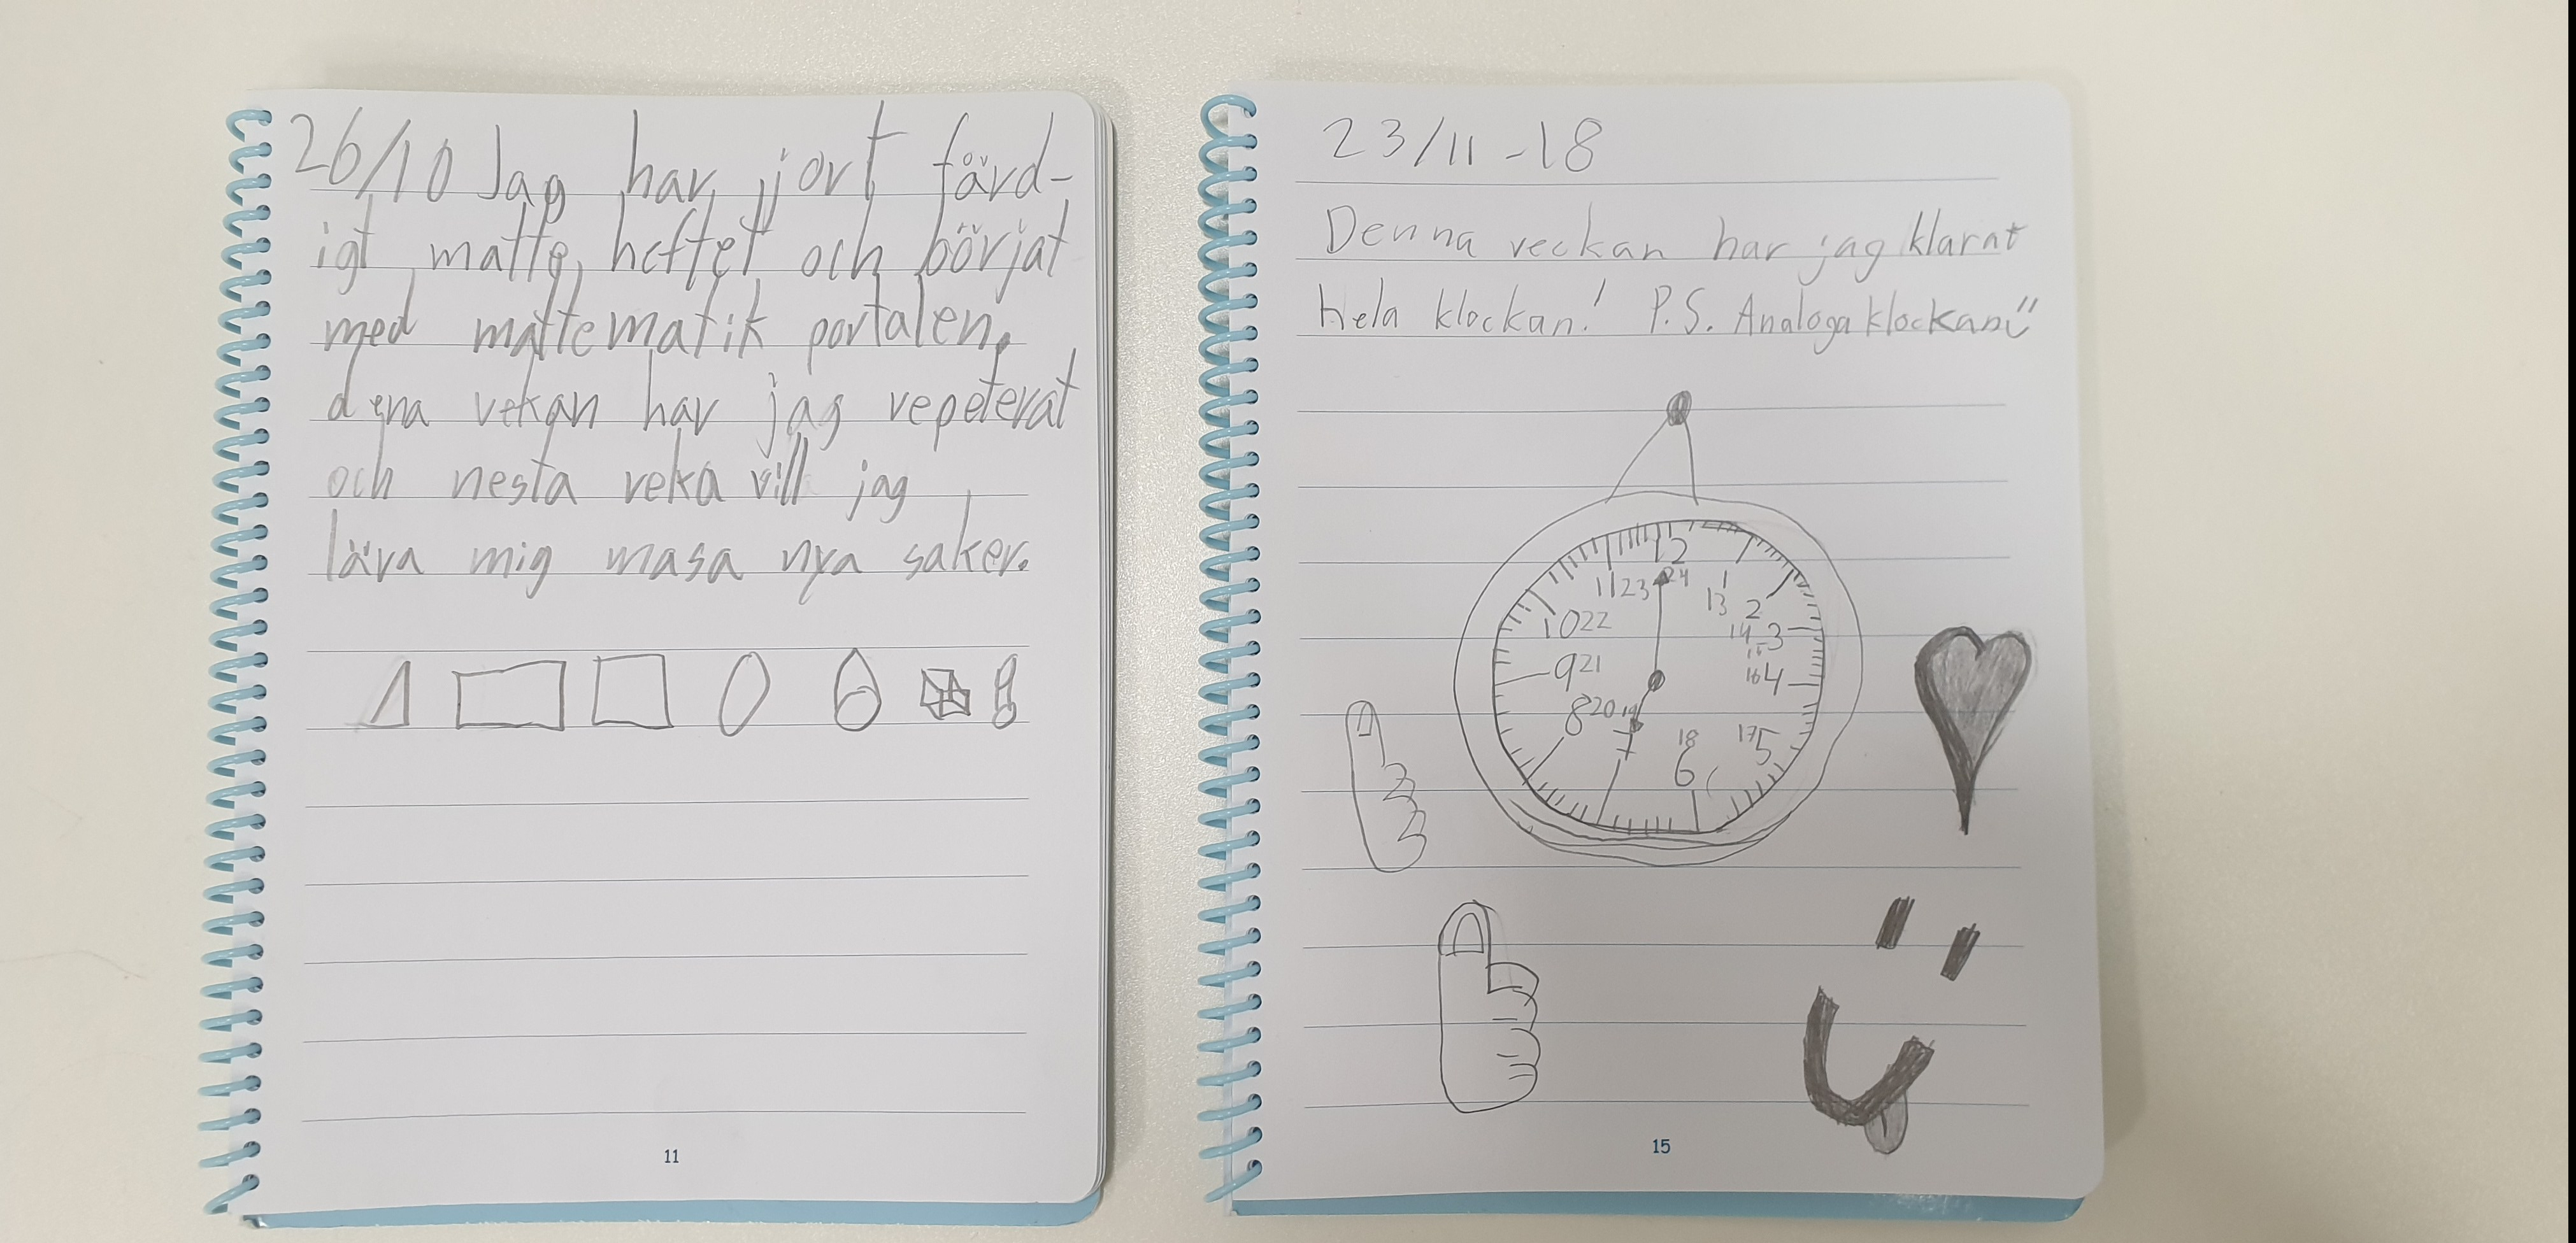 26/10 Jag har jort färd-
igt matte heftet och börjat
med mattematik portalen.
dena vekan har jag repeterat
och nesta veka vill jag
lära mig masa nya saker.
11
23/11 -18
Denna veckan har jag klarat
hela klockan! P.S. Analoga klockan
12
11 23 24 1
13 2
10 22 14 3
15
9 21 16 4
8 20 19 18 17 5
7 6
15